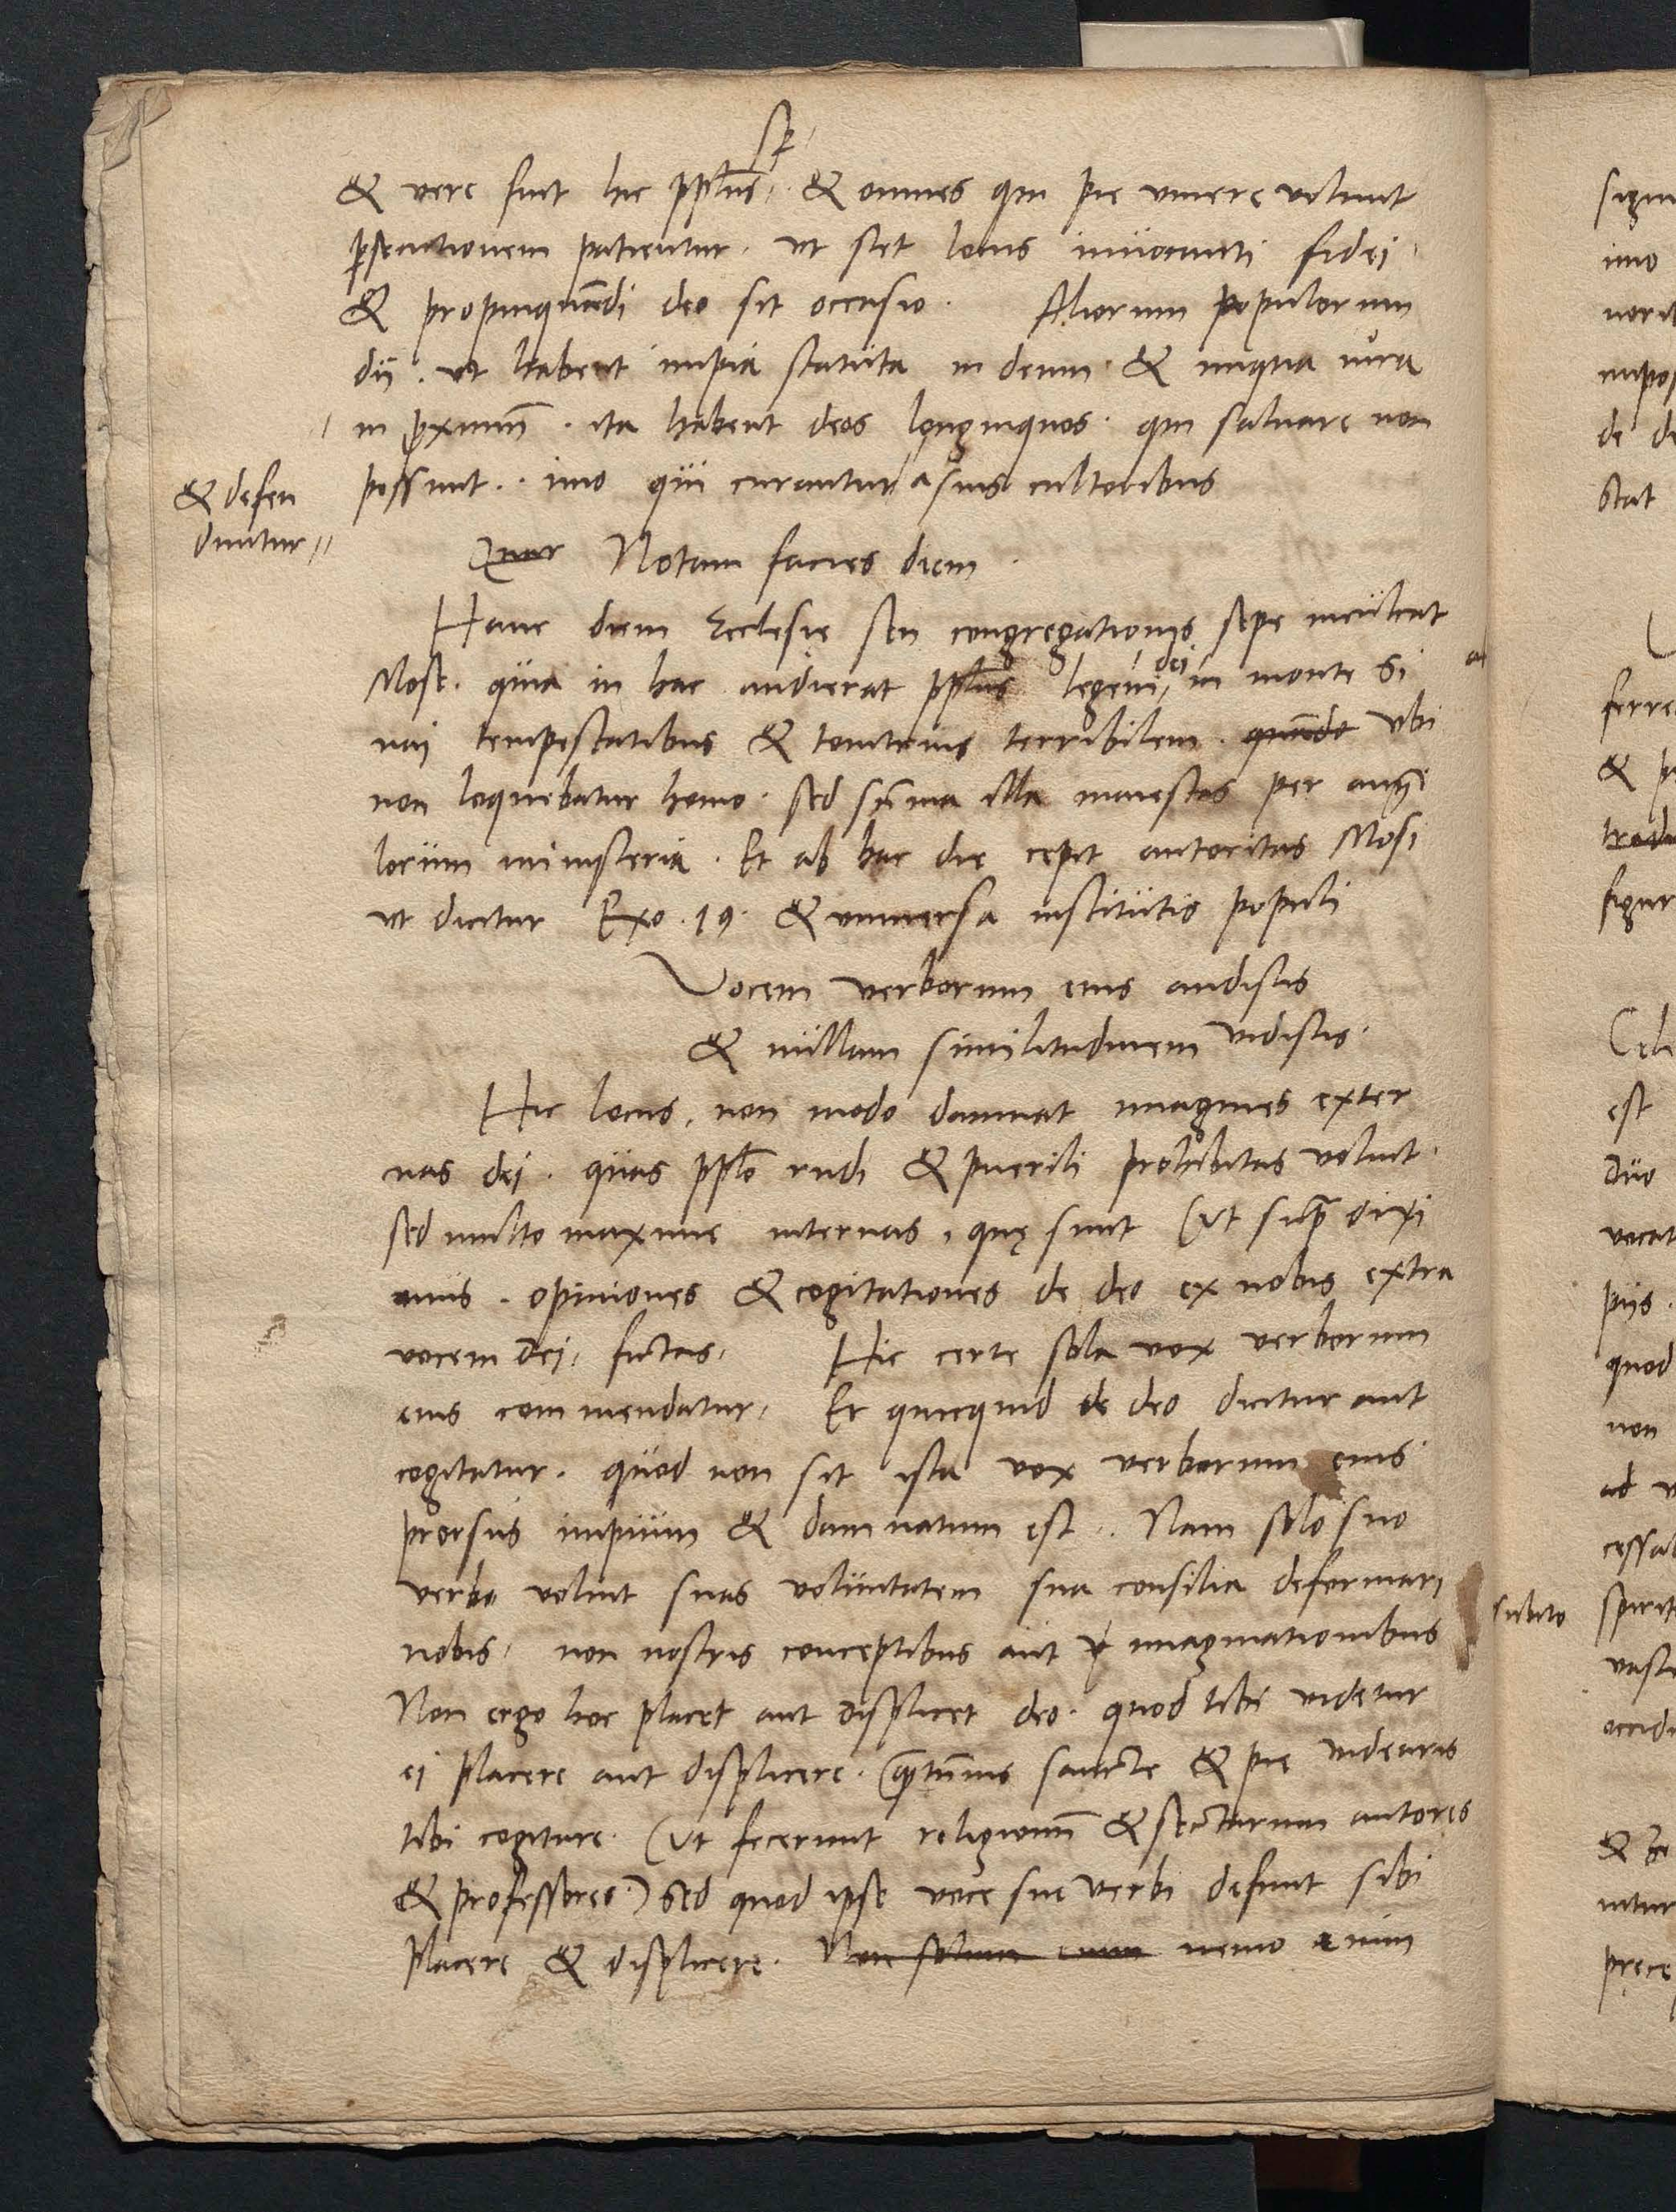 sp
& vere fuit hic pplus. & omnes qui pie vivere volunt
persecutionem patientur. ut stet locus invocanti fidei
& propinquandi deo sit occasio. Aliorum populorum
dii. ut habent impia statuta in deum & iniqua iura
in proximum. ita habent deos longinquos. qui salvare non
possunt. imo qui curantur a suis cultoribus
& defen
duntur
Notam facies diem
Hanc diem Ecclesie seu congregationis sepe inculcat
Mose. quia in hac audierat pplus legem dei in monte Si
nai tempestatibus & tonitruis terribilem. quando ubi
non loquebatur homo. sed summa illa maiestas per ange
lorum ministeria. Et ab hac die cepit autoritas Mosi
ut dicitur Exo. 19. & universa institutio populi
Vocem verborum eius audistis
& nullam similitudinem vidistis.
Hic locus, non modo damnat imagines exter
nas dei. quas pplo rudi & puerili prohibitas voluit.
sed multo maxime internas, quę sunt (ut supra dixi
mus. opiniones & cogitationes de deo ex nobis extra
vocem dei, fictas. Hic certe sola vox verborum
eius commendatur, Et quicquid de deo dicitur aut
cogitatur. quod non sit ista vox verborum eius
prorsus impium & damnatum est. Nam solo suo
verbo voluit suas voluntatem sua consilia deformari
nobis, non nostris conceptibus aut imaginationibus
Non ergo hoc placet aut displicet deo. quod tibi videtur
ei placere aut displicere. quantumvis sancte & pie videaris
tibi cogitare. (ut fecerunt religionum & sectarum autores
& professores.) Sed quod ipse voce sui verbi definit sibi
placere & displicere. Non solum enim nemo enim
imo
de de
stat
ferre
& p
figur
est
duo
vocat
piis.
quod
non
ad v
subito